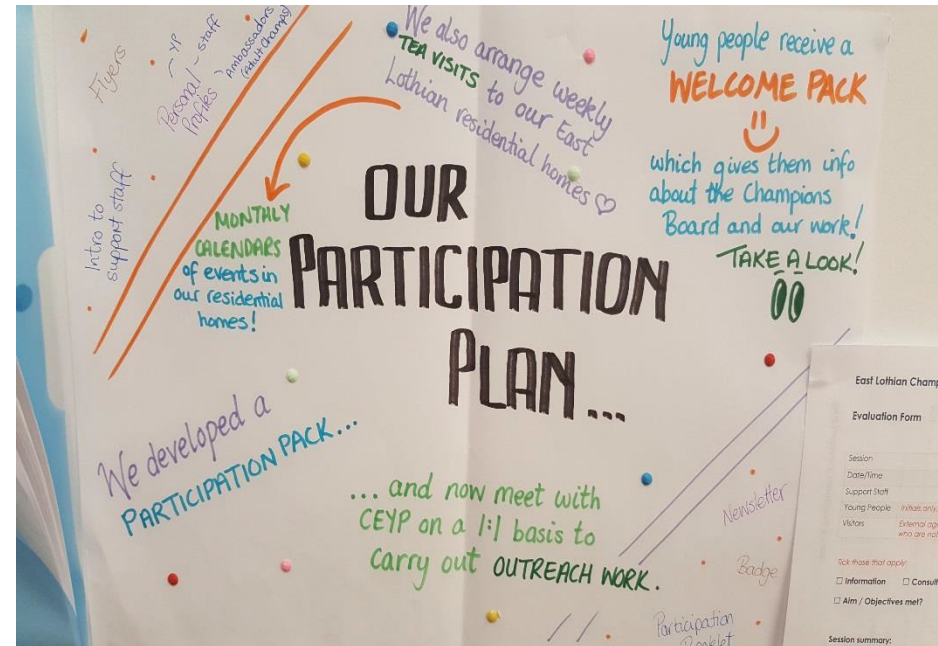 Flyers
Personal - staff
Profiles
YP
Ambassadors
(Adult Champs)
Intro to
support staff
We also arrange weekly
TEA VISITS to our East
Lothian residential homes
MONTHLY
CALENDARS
of events in
our residential
homes!
OUR
PARTICIPATION
PLAN...
Young people receive a
WELCOME PACK
which gives them info
about the Champions
Board and our work!
TAKE A LOOK!
We developed a
PARTICIPATION PACK...
... and now meet with
CEYP on a 1:1 basis to
carry out OUTREACH WORK.
Newsletter
Badge
Participation
Booklet
East Lothian Champ
Evaluation Form
Session
Date/Time
Support Staff
Young People Initials only.
Visitors External ag
who are not
Tick those that apply:
☐ Information ☐ Consult
☐ Aim / Objectives met?
Session summary: